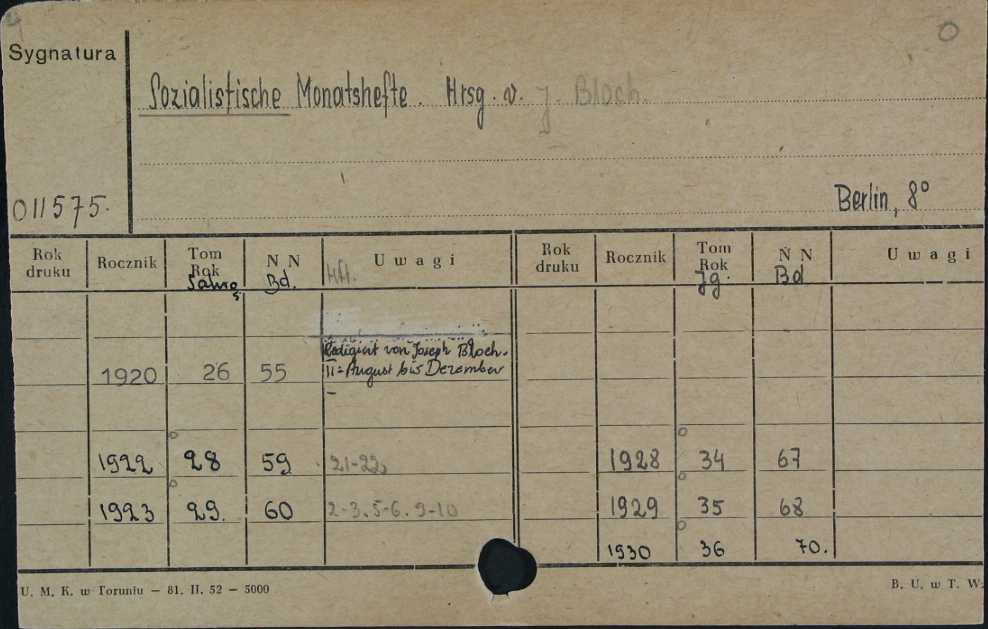 Sygnatura
Sozialistische Monatshefte. Hrsg. v. J. Bloch.
011575.
Berlin, 8°
Rok druku Rocznik Tom Rok N N Bd. Hft. U w a g i Rok druku Rocznik Tom Rok Jg. N N Bd U w a g i
Redigiert von Joseph Bloch.
1920 26 55 II = August bis Dezember
1922 28 59 21-22, 1928 34 67
1923 29. 60 2-3.5-6.9-10 1929 35 68
1930 36 70.
U. M. K. w Toruniu — 81. II. 52 — 5000
B. U. w T. W.